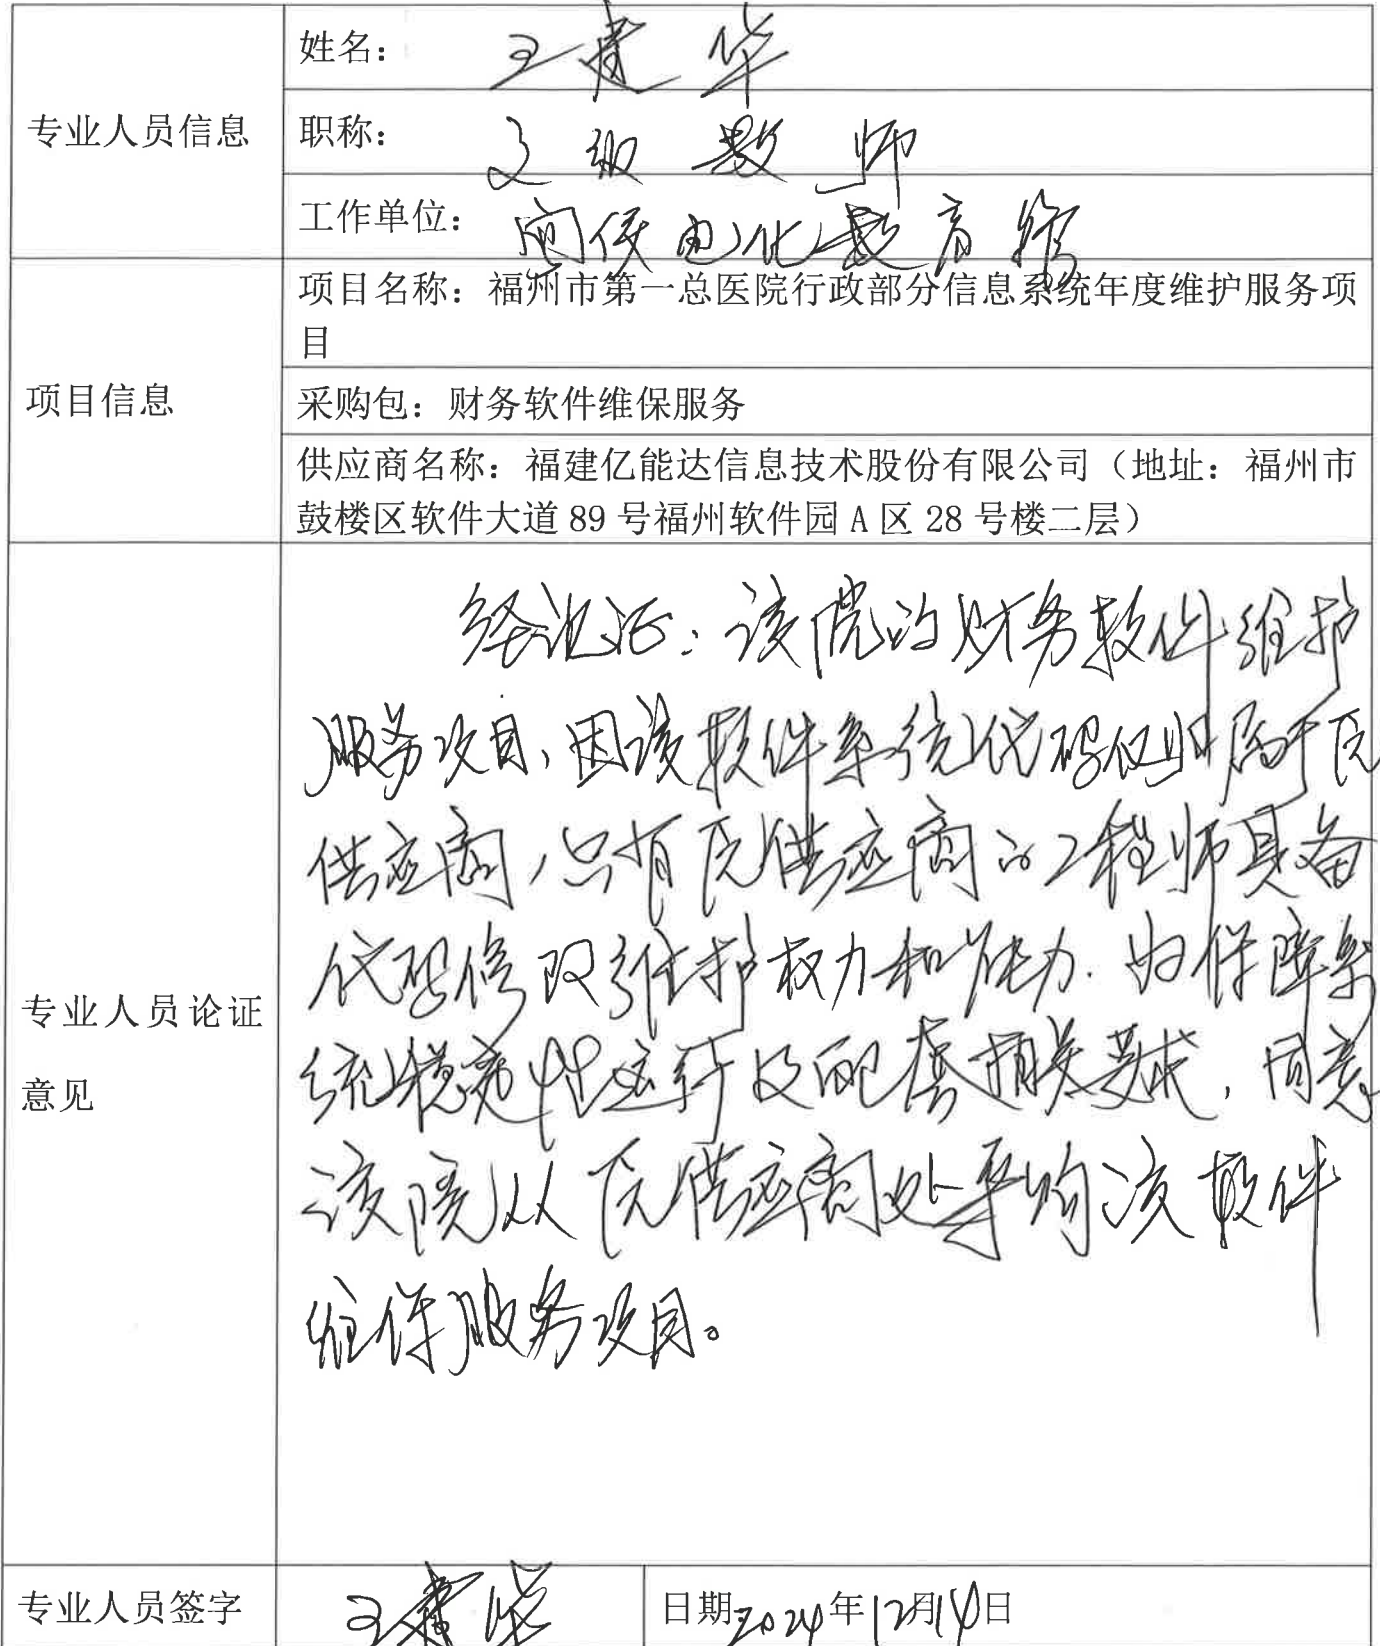 专业人员信息
姓名： 王建华
职称： 高级教师
工作单位： 闽侯电化教育馆
项目信息
项目名称：福州市第一总医院行政部分信息系统年度维护服务项
目
采购包：财务软件维保服务
供应商名称：福建亿能达信息技术股份有限公司（地址：福州市
鼓楼区软件大道 89 号福州软件园 A 区 28 号楼二层）
专业人员论证
意见
经论证：该院的财务软件维护
服务项目，因该软件系统代码仅归属于原
供应商，只有原供应商的工程师具备
代码修改维护权力和能力.为保障系
统稳定性运行及配套相关要求，同意
该院从原供应商处采购该软件
维保服务项目。
专业人员签字
王建华
日期 2024年12月14日